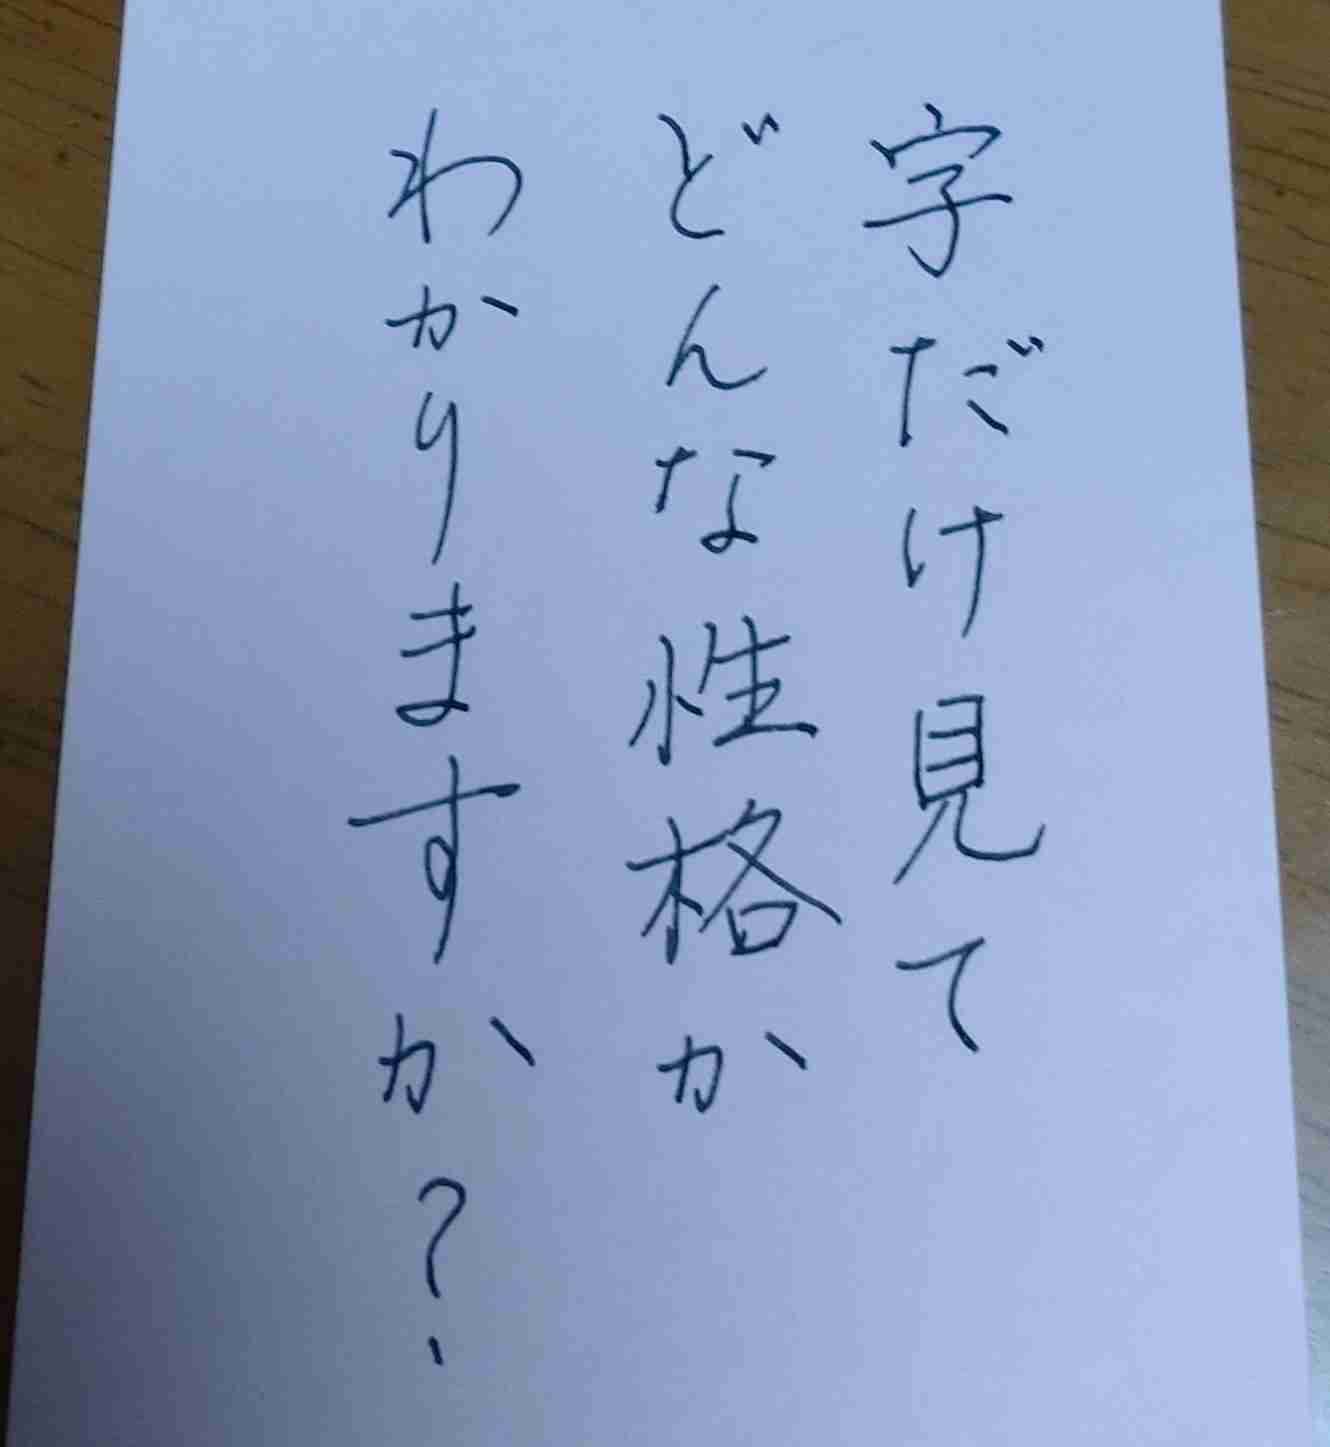 字だけ見て
どんな性格か
わかりますか?